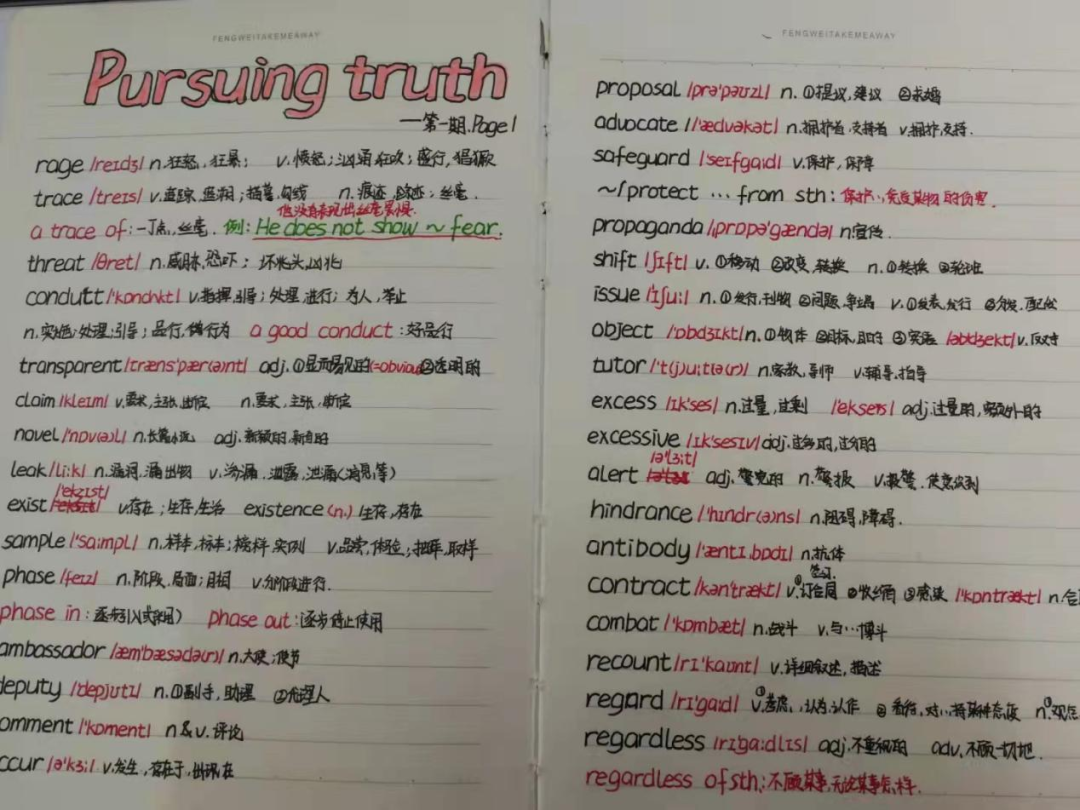 FENGWEITAKEMEAWAY
Pursuing truth
—第一期.Page1
rage /reɪdʒ/ n.狂怒,狂暴; v.愤怒;汹涌狂吹;盛行,猖獗
trace /treɪs/ v.追踪,追溯;描摹,勾线 n.痕迹,踪迹;丝毫.
他没有表现出丝毫畏惧.
a trace of:一丁点,丝毫. 例: He does not show ~ fear.
threat /θret/ n.威胁,恐吓; 坏兆头,凶兆
conduct /'kɒndʌkt/ v.指挥,引导;处理,进行;为人,举止
n.实施;处理;引导;品行,行为 a good conduct :好品行
transparent /træns'pær(ə)nt/ adj.①显而易见的(=obvious)②透明的
claim /kleɪm/ v.要求,主张,断定 n.要求,主张,断定
novel /'nɒv(ə)l/ n.长篇小说 adj.新颖的,新奇的
leak /li:k/ n.漏洞,漏出物 v.渗漏,泄露,泄漏(消息等)
exist /'ekzɪst/ v.存在;生存,生活 existence (n.) 生存,存在
sample /'sa:mpl/ n.样本,标本;榜样,实例 v.品尝,体验;抽样,取样
phase /feɪz/ n.阶段,局面;月相 v.分阶段进行.
phase in :逐步引入(或采用) phase out :逐步停止使用
ambassador /æm'bæsədə(r)/ n.大使;使节
deputy /'depjʊtɪ/ n.①副手,助理 ②代理人
omment /'kɒment/ n&v.评论
ccur /ə'kɜ:/ v.发生,存在于,出现在
FENGWEITAKEMEAWAY
proposal /prə'pəʊzl/ n.①提议,建议 ②求婚
advocate /'ædvəkət/ n.拥护者,支持者 v.拥护,支持.
safeguard /'seɪfgɑːd/ v.保护,保障
~/protect … from sth: 保护…免受某物的伤害.
propaganda /ˌprɒpə'gændə/ n.宣传.
shift /ʃɪft/ v.①移动 ②改变,转换 n.①转换 ②轮班
issue /'ɪʃu:/ n.①发行,刊物 ②问题,争端 v.①发表,发行 ②分发,配给
object /'ɒbdʒɪkt/ n.①物体 ②目标,目的 ③宾语 /əbdʒekt/ v.反对
tutor /'t(j)u:tə(r)/ n.家教,导师 v.辅导,指导
excess /ɪk'ses/ n.过量,过剩 /'ekses/ adj.过量的,额外的
excessive /ɪk'sesɪv/ adj.过多的,过分的
alert /ə'lɜ:t/ adj.警觉的 n.警报 v.报警,使意识到
hindrance /'hɪndr(ə)ns/ n.阻碍,障碍.
antibody /'æntɪ,bɒdɪ/ n.抗体
contract /kən'trækt/ v.①签订,订合同 ②收缩 ③感染 /'kɒntrækt/ n.合
combat /'kɒmbæt/ n.战斗 v.与…搏斗
recount /rɪ'kaʊnt/ v.详细叙述,描述
regard /rɪ'gɑːd/ v.①考虑,认为,认作 ②看待,对…持某种态度 n.①观
regardless /rɪ'ga:dlɪs/ adj.不重视的 adv.不顾一切地.
regardless of sth: 不顾某事,无论某事怎样.